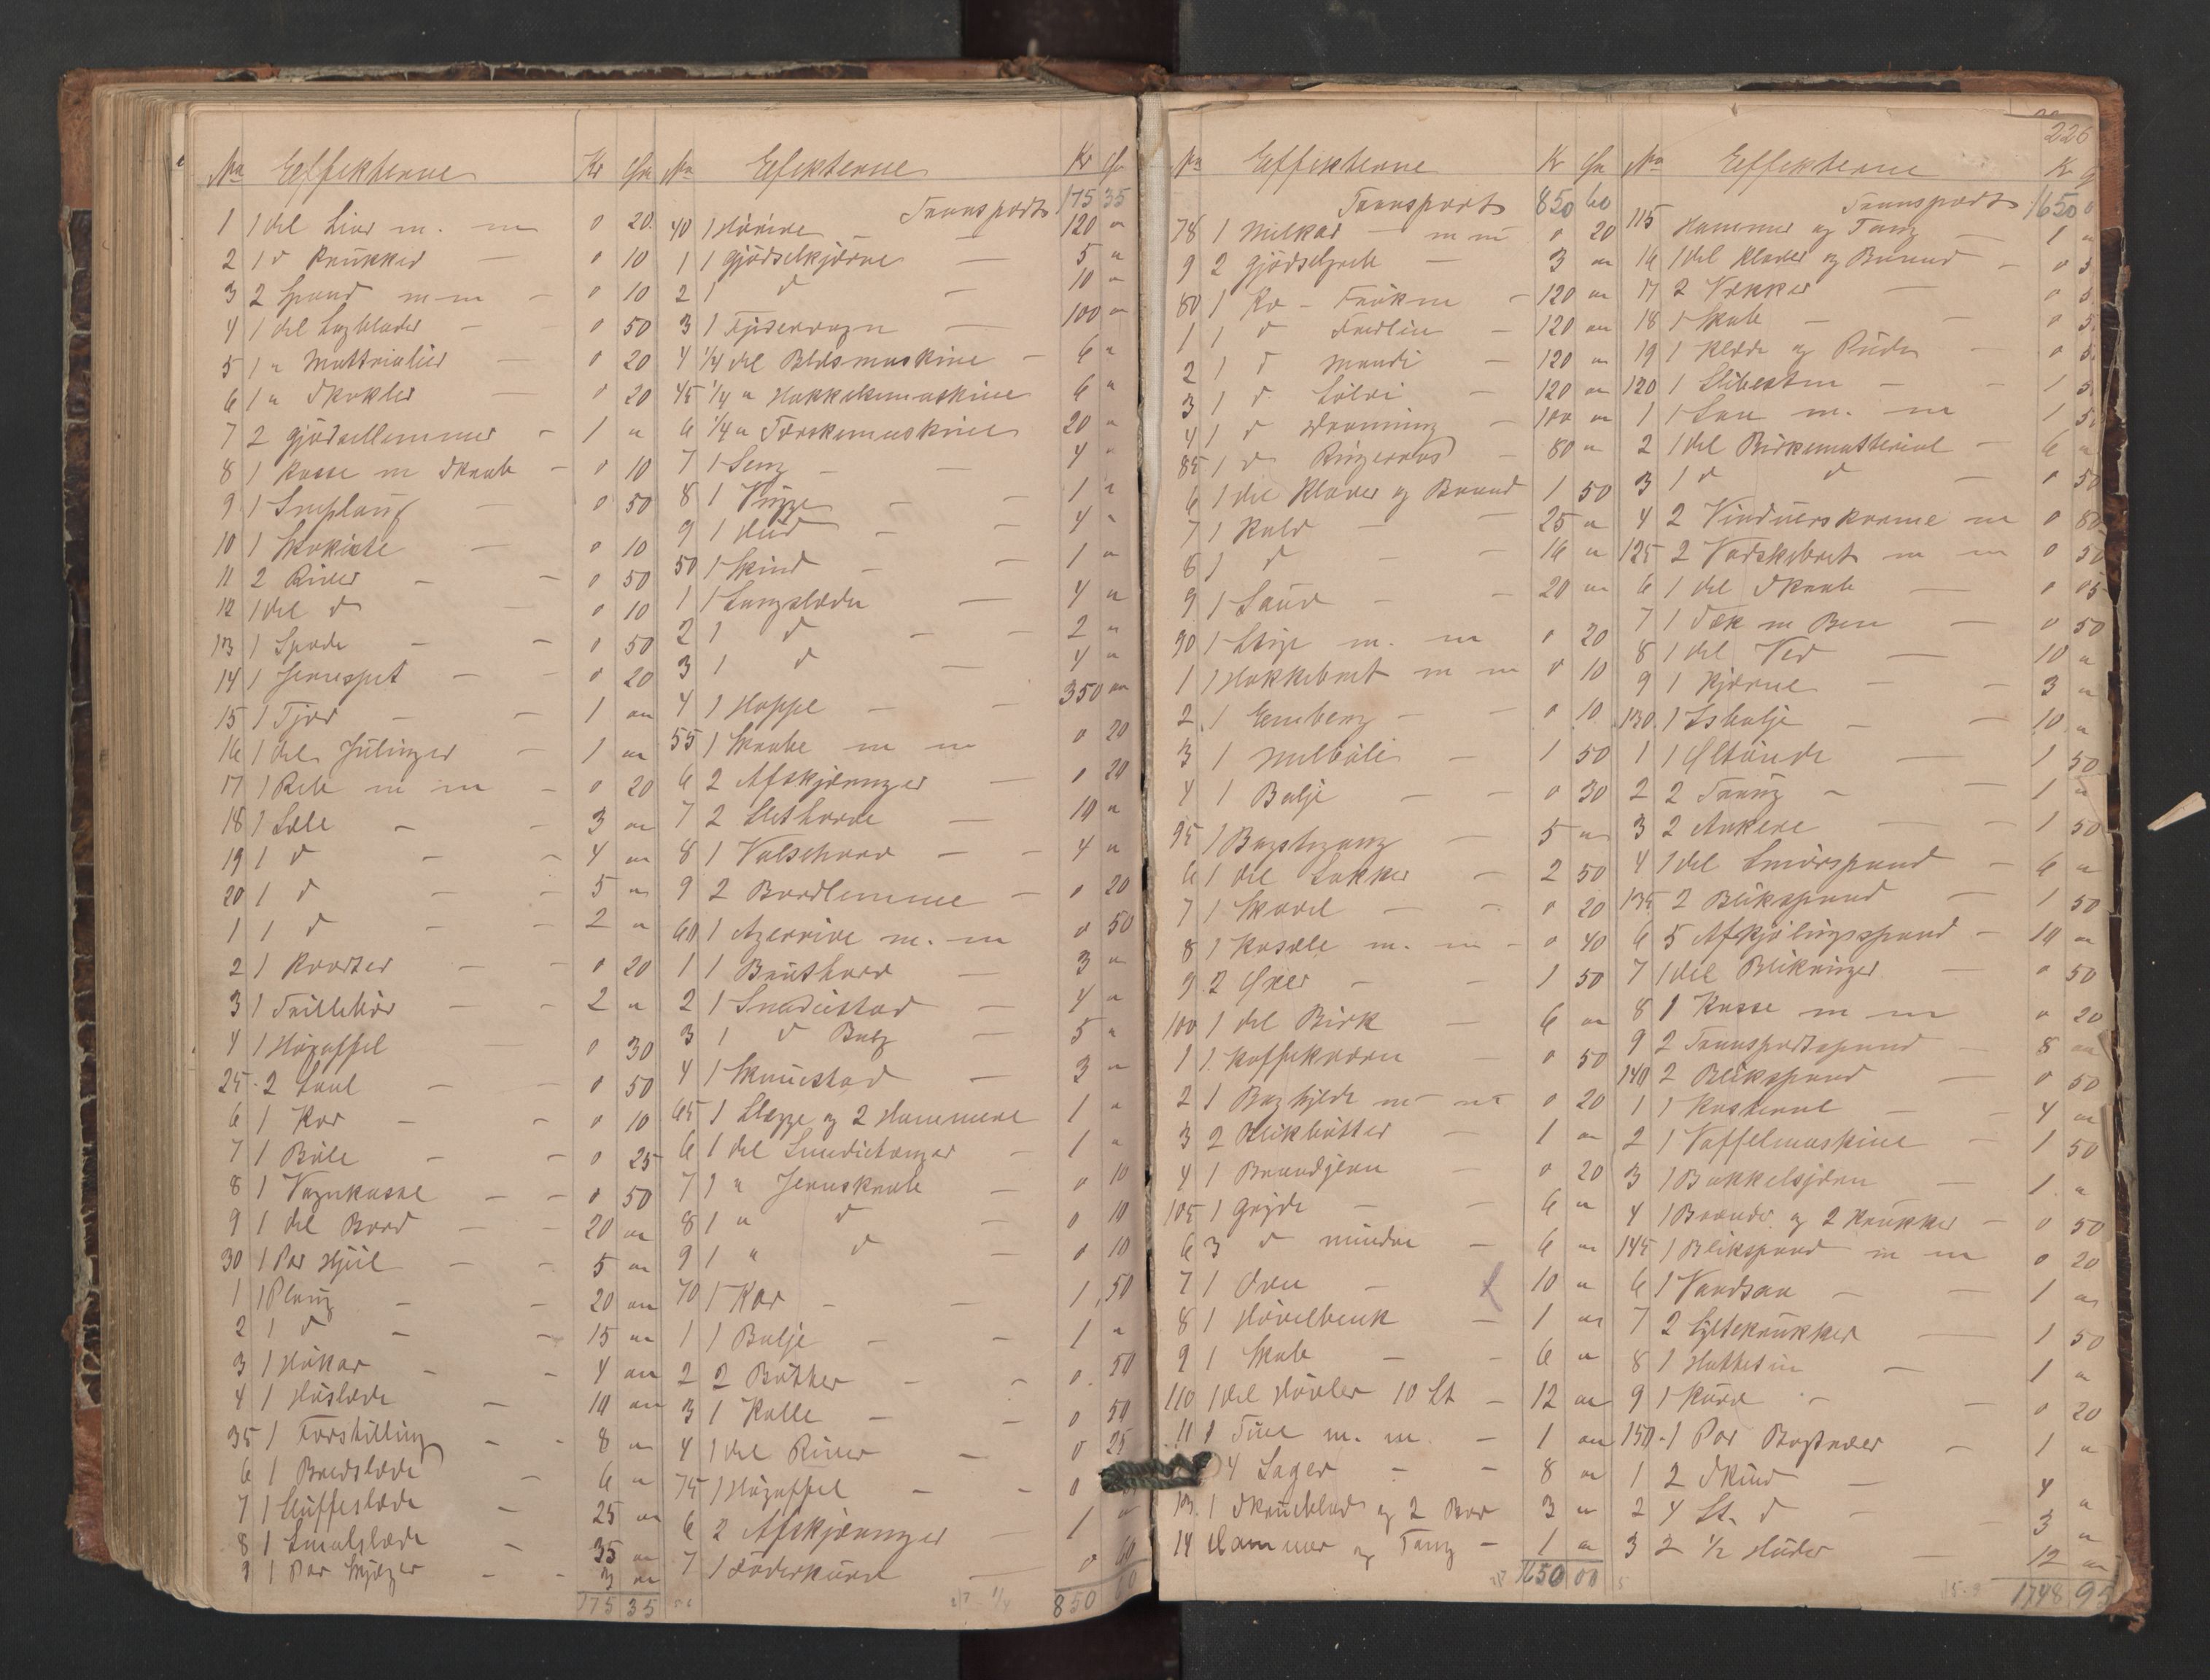 No Effekterne Kr Ør
1 1 del Liner m. m 0 20
2 1 d Krükker 0 10
3 2 Spand m m 0 10
4 1 del Sagblader 0 50
5 1 " Mattrialier 0 20
6 1 " Skokler 0 20
7 2 Gjødsellemmer 1 "
8 1 Kasse m Skrab 0 10
9 1 0 50
10 1 0 10
11 2 River 0 50
12 1 del d 0 10
13 1 Spade 0 50
14 1 Jernspet 0 20
15 1 Tjor 1 "
16 1 del 1 "
17 1 Reb m m 0 20
18 1 Sele 3 "
19 1 d 4 "
20 1 d 5 "
1 1 d 2 "
2 1 0 20
3 1 Trillebør 2 "
4 1 Høgaffel 0 30
25 2 0 50
6 1 Kar 0 10
7 1 0 25
8 1 Vognkasse 0 50
9 1 del Bord 20 "
30 1 Par Hjül 5 "
1 1 Ploug 20 "
2 1 d 15 "
3 1 4 "
4 1 Høslæde 10 "
35 1 Forstilling 8 "
6 1 Bredslæde 6 "
7 1 Sluffeslæde 25 "
8 1 Smalslæde 35 "
9 1 Par 3 "
175 35
No Effekterne Kr Ør
Transport 175 35
40 1 Hørive 120 "
1 1 Gjødselkjærre 5 "
2 1 d 10 "
3 1 Fjedervogn 100 "
4 1/4 del Blæsmaskine 6 "
45 1/4 " Hakkelsmaskine 6 "
6 1/4 " Tærskemaskine 20 "
7 1 Seng 4 "
8 1 Vügge 1 "
9 1 Hüd 4 "
50 1 Skind 1 "
1 1 Langslæde 4 "
2 1 d 2 "
3 1 d 4 "
4 1 Hoppe 350 "
55 1 Skrabe m m 0 20
6 2 Afskjæringer 0 20
7 2 Sletharve 10 "
8 1 Valseharv 4 "
9 2 Bordlemme 0 20
60 1 Agerrive m. m 0 50
1 1 3 "
2 1 Smediestad 4 "
3 1 d Bælg 5 "
4 1 Skruestad 3 "
65 1 Slægge og 2 Hammere 1 "
6 1 del Smedietænger 1 "
7 1 " Jernskrab 0 10
8 1 " d 0 10
9 1 " d 0 10
70 1 Kar 1 50
1 1 Balje 1 "
2 2 Bøtter 0 50
3 1 Kolle 0 50
4 1 del River 0 25
75 1 Høgaffel 0
6 2 Afskjæringer 1 "
7 1 Foderkurv 0 60
850 60
No Effekterne Kr Ør
Transport 850 60
78 1 Melkar m m 0 20
9 2 Gjødselgreb 3 "
80 1 Ko - Frøken 120 "
1 1 d Fredlin 120 "
2 1 d 120 "
3 1 d 120 "
4 1 d Dronning 100 "
85 1 d Ringerøs 80 "
6 1 del Klaver og Baand 1 50
7 1 Kalv 25 "
8 1 d 16 "
9 1 Saüe 20 "
90 1 Stige m. m 0 20
1 1 Hakkebræt m m 0 10
2 1 0 10
3 1 Melbøle 1 50
4 1 Balje 0 30
95 1 5 "
6 1 del Sækker 2 50
7 1 Skovl 0 20
8 1 m. m 0 40
9 2 Øxer 1 50
100 1 del Birk 6 "
1 1 Kaffekværn 0 50
2 1 Baghylde m m 0 20
3 2 Blikbøtter 1 "
4 1 Brændjern 0 20
105 1 Gryde 6 "
6 3 d mindre 6 "
7 1 Ovn 10 "
8 1 Høvelbenk 1 "
9 1 Skab 6 "
110 1 del Høvler 10 St 12 "
11 1 m. m 1 "
4 Sager 8 "
13 1 og 2 Bor 3 "
14 Hammer og Tang 1 "
1650 00
226
No Effekterne Kr Ø
Transport 1650 0
115 Hammer og Tang 1 "
16 1 del Klaver og Baand 0 5
17 2 0 5
18 1 Skab 0 5
19 1 og 0 5
120 1 Slibesten 1 5
1 1 m. m 1 5
2 1 del Birkematterial 6 "
3 1 d d 0 50
4 2 Vindüerskarme m 0 80
125 2 Vadskebræt m m 0 50
6 1 del Skrab 0 05
7 1 m Ben 0 50
8 1 del Ved 10 "
9 1 Kjærne 3 "
130 1 Isbalje 10 "
1 1 Øltønde 1 50
2 2 1 "
3 2 Ankere 1 50
4 1 del Smørspand 6 "
135 2 Blikspand 1 50
6 5 Afkjølingsspand 10 "
7 1 del Blikringer 0 50
8 1 Kasse m m 0 20
9 2 Transportspand 8 "
140 2 Blikspand 0 50
1 1 4 "
2 1 Vaffelmaskine 1 50
3 1 Bakkelsjern 1 "
4 1 og 2 Krükker 0 50
145 1 Blikspand m m 0 20
6 1 Vandsaa 1 "
7 2 Syltekrükker 1 50
8 1 1 "
9 1 Kürv 0 20
150 1 Par 1 "
1 2 Skind 4 "
2 4 St. d 3 "
3 2 1/2 Hüder 12 "
1748 95